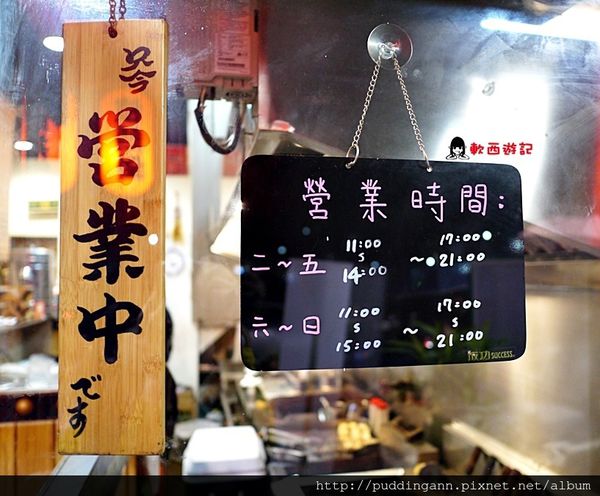 只今
営業中
です
軟西遊記
營業時間:
二~五 11:00 S 14:00 ~ 17:00 S 21:00
六~日 11:00 S 15:00 ~ 17:00 S 21:00
SUCCESS
http://puddingann.pixnet.net/album